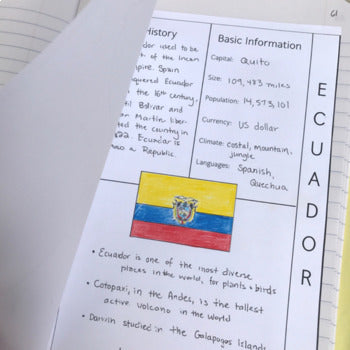 61
History
dor used to be
t of the Incan
pire. Spain
quered Ecuador
the 16th century,
til Bolivar and
an Martin liber-
ted the country in
22. Ecuador is
a Republic
Basic Information
Capital: Quito
Size: 109,483 miles
Population: 14,573,101
Currency: US dollar
Climate: costal, mountain,
jungle
Languages: Spanish,
Quechua
ECUADOR
• Ecuador is one of the most diverse
places in the world, for plants + birds
• Cotopaxi, in the Andes, is the tallest
active volcano in the world
• Darwin studied in the Galapagos Islands